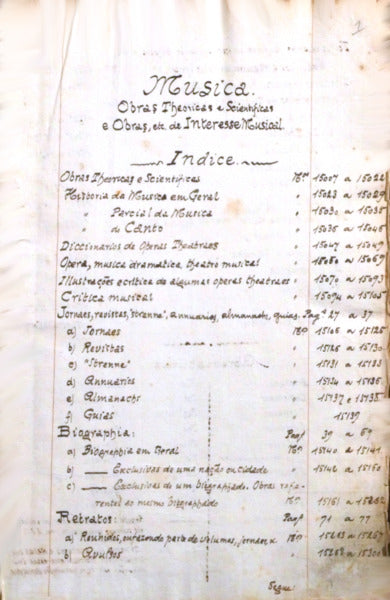 1
Musica.
Obras Theoricas e Scientificas
e Obras, etc. de Interesse Musical.
Indice
Obras Theoricas e Scientificas Nos 15007 a 15022
Historia da Musica em Geral " 15023 a 15029
" Parcial da Musica " 15030 a 15035
" do Canto " 15036 a 15046
Diccionarios de Obras Theatraes " 15047 a 15049
Opera, musica dramatica, theatro musical " 15050 a 15069
Illustrações e critica de algumas operas theatraes " 15070 a 15093
Critica musical " 15094 a
Jornaes, revistas, "strenne", annuarios, almanachs, guias. Pags 27 a 37
a) Jornaes Nos 15106 a 15125
b) Revistas " 15126 a 15130
c) "Strenne" " 15131 a 15133
d) Annuarios "
e) Almanachs " 15137 e 15138
f) Guias 15139
Biographia: Pags 39 a 69
a) Biographia em Geral Nos 15140 a
b) —— Exclusivas de uma nação ou cidade "
c) —— Exclusivas de um biographado. Obras refe-
rentes ao mesmo biographado Nos 15161 a
Retratos: Pags 71 a 77
a) Reunidos, ou fazendo parte de volumes, jornaes Nos
b) Avulsos "
Segue